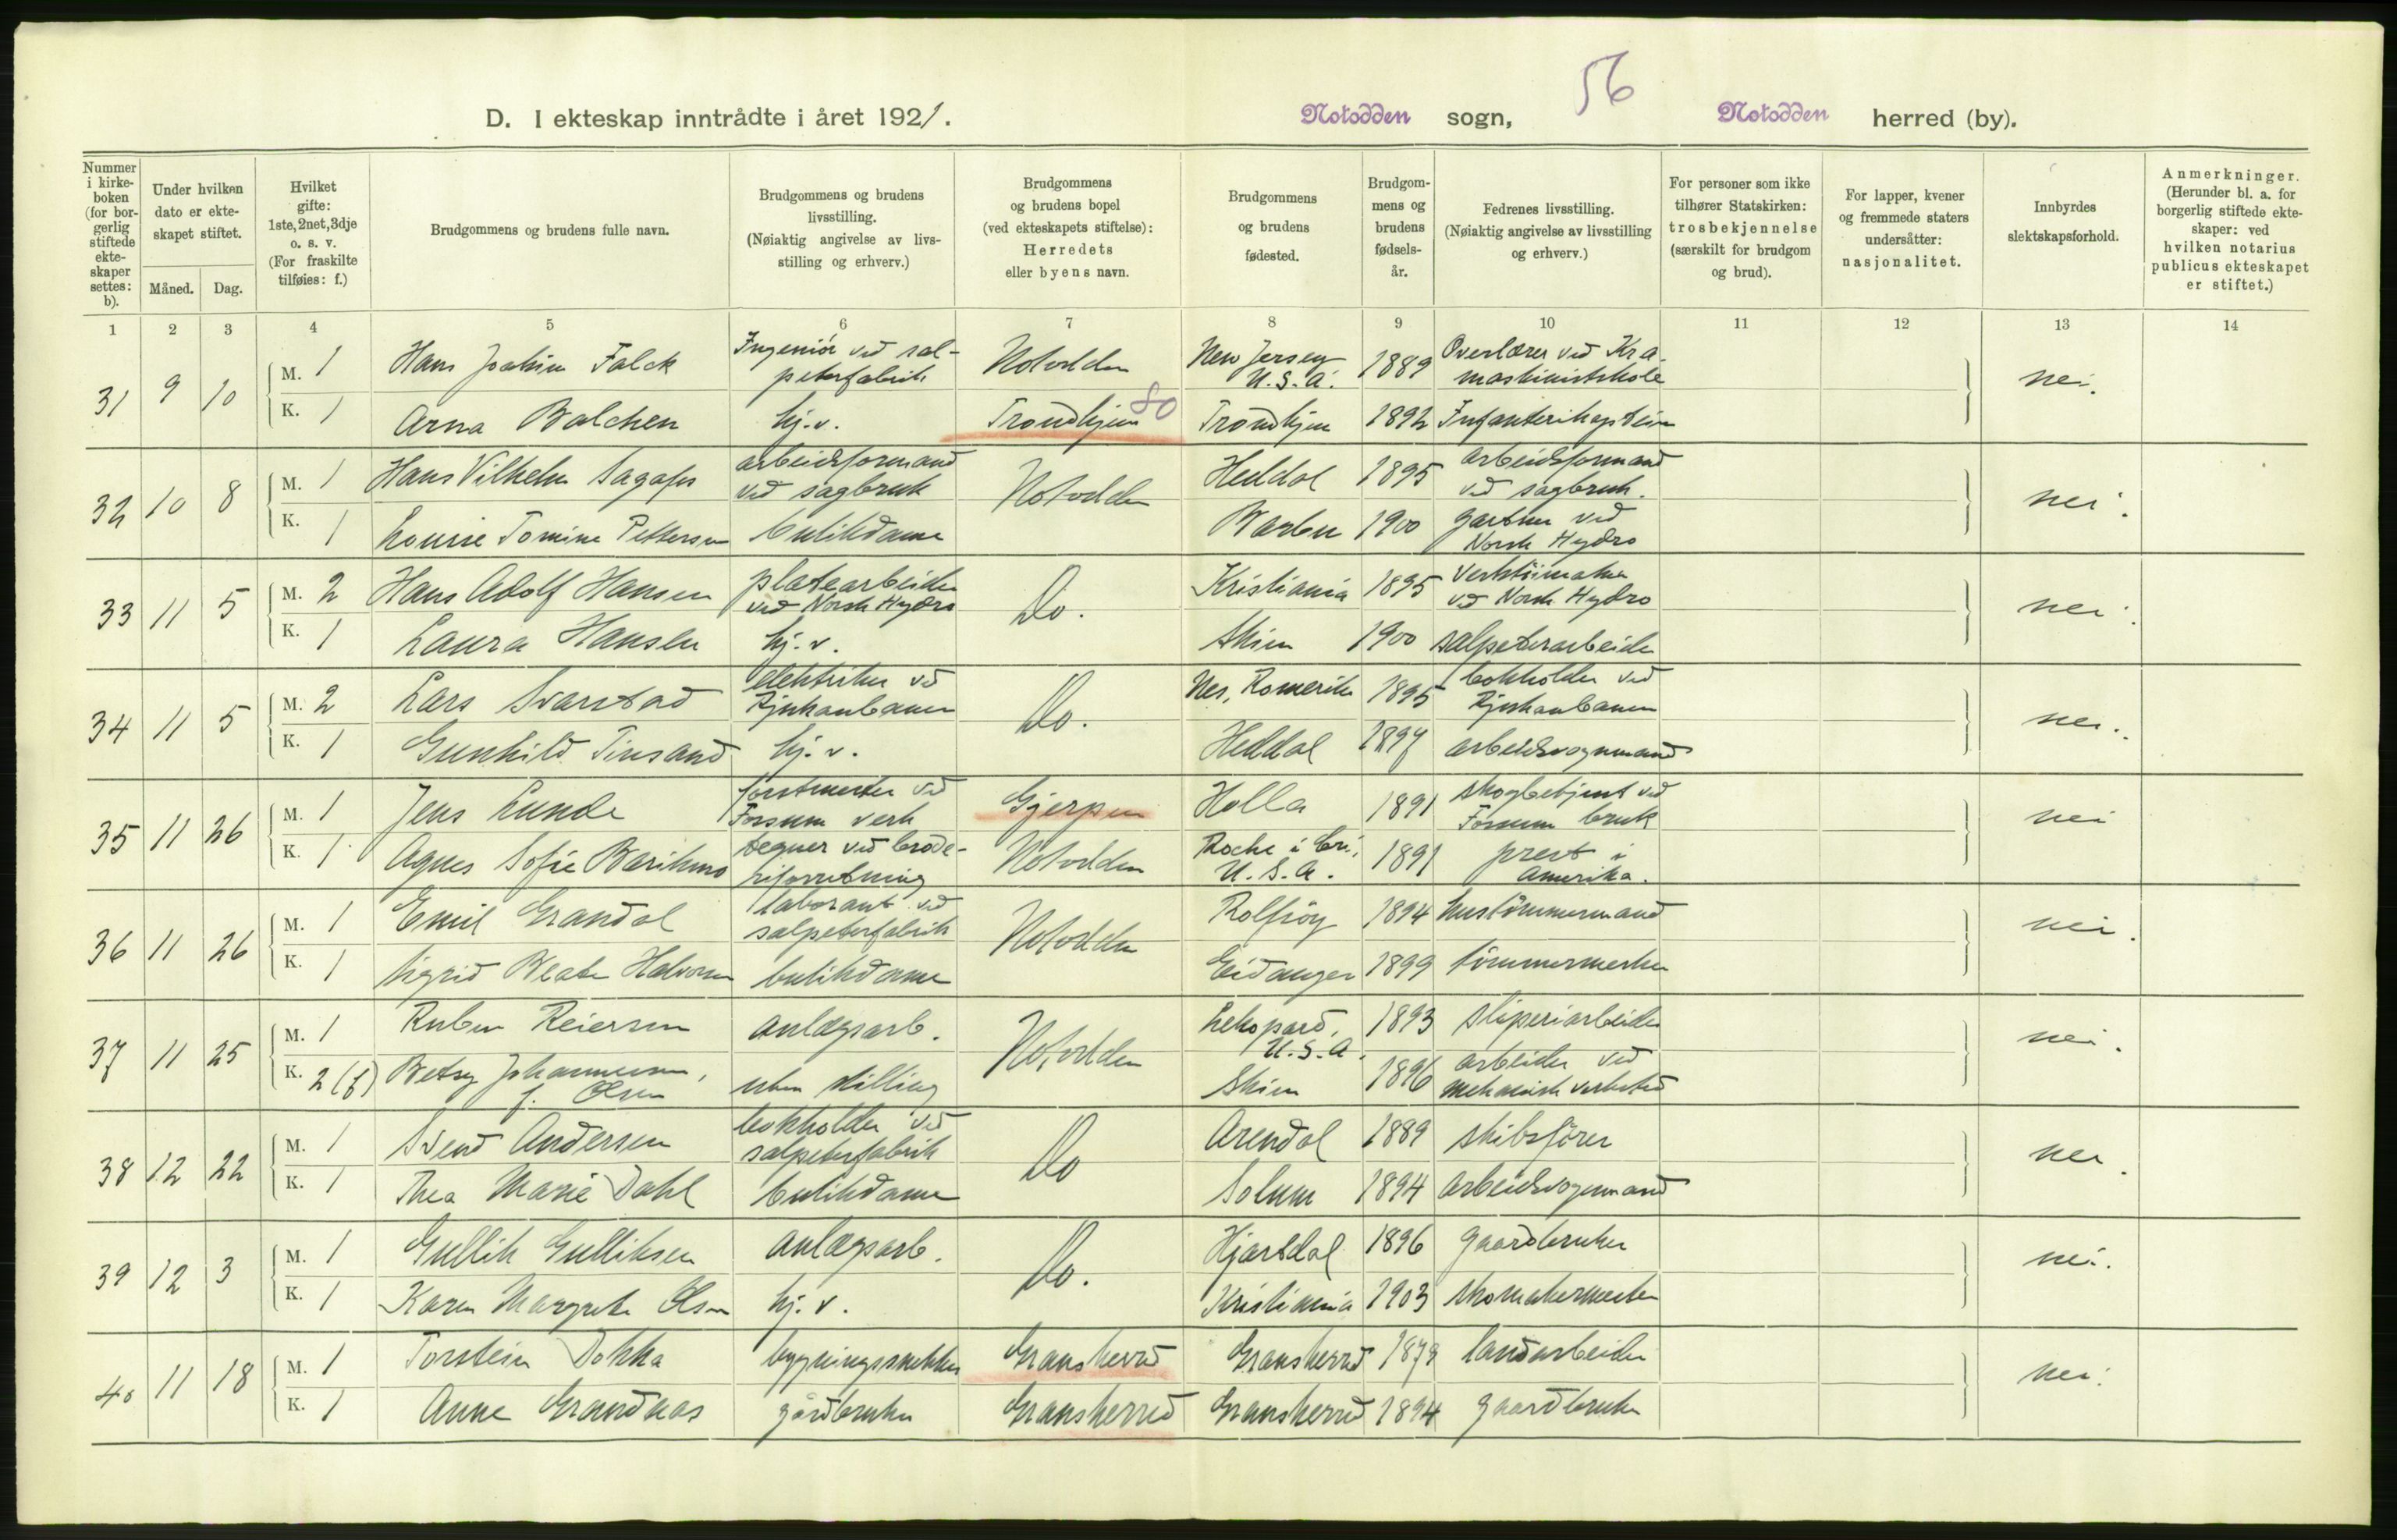 56
D. I ekteskap inntrådte i året 1921.
Notodden sogn,
Notodden herred (by).
Nummer i kirke-boken (for bor-gerlig stiftede ekte-skaper settes: b).
Under hvilken dato er ekte-skapet stiftet.
Måned. Dag.
Hvilket gifte: 1ste, 2net, 3dje o. s. v. (For fraskilte tilføies: f.)
Brudgommens og brudens fulle navn.
Brudgommens og brudens livsstilling. (Nøiaktig angivelse av livs-stilling og erhverv.)
Brudgommens og brudens bopel (ved ekteskapets stiftelse): Herredets eller byens navn.
Brudgommens og brudens fødested.
Brudgom-mens og brudens fødsels-år.
Fedrenes livsstilling. (Nøiaktig angivelse av livsstilling og erhverv.)
For personer som ikke tilhører Statskirken: trosbekjennelse (særskilt for brudgom og brud).
For lapper, kvener og fremmede staters undersåtter: nasjonalitet.
Innbyrdes slektskapsforhold.
Anmerkninger. (Herunder bl. a. for borgerlig stiftede ekte-skaper: ved hvilken notarius publicus ekteskapet er stiftet.)
1 2 3 4 5 6 7 8 9 10 11 12 13 14
31 9 10 M. 1 Hans Joakim Falck Ingeniör ved sal-peterfabrik Notodden New Jersey U.S.A. 1889 Overlærer ved Kr.a. maskinistskole nei.
K. 1 Arna Balchen hj.v. Trondhjem 80 Trondhjem 1892 Infanterikaptein
32 10 8 M. 1 Hans Vilhelm Sagafos arbeidsformand ved sagbruk Notodden Heddal 1895 arbeidsformand ved sagbruk. nei.
K. 1 Lovise Tomine Pettersen butikdame Barbu 1900 gartner ved Norsk Hydro
33 11 5 M. 2 Hans Adolf Hansen platearbeider ved Norsk Hydro Do. Kristiania 1895 Verktöimaker ved Norsk Hydro nei.
K. 1 Laura Hansen hj.v. Skien 1900 salpeterarbeider
34 11 5 M. 2 Lars Svarstad elektriker ved Rjukanbanen Do. Nes, Romerike 1895 bokholder ved Rjukanbanen nei.
K. 1 Gunhild Tinsand hj.v. Heddal 1897 arbeidsvognmand
35 11 26 M. 1 Jens Lunde forstmester ved Fossum verk Gjerpen Holla 1891 skogbetjent ved Fossum bruk nei
K. 1 Agnes Sofie tegner ved brode-riforretning Notodden Roche i U.S.A. 1891 prest i Amerika.
36 11 26 M. 1 Emil Grandal laborant ved salpeterfabrik Notodden Rolfsöy 1894 hustömmermand nei.
K. 1 Sigrid Beate Halvorsen butikdame Eidanger 1899 tömmermerker
37 11 25 M. 1 Ruben Reiersen anlægsarb. Notodden U.S.A. 1893 sliperiarbeider nei.
K. 2 (f) Betsy Johannessen, f. Olsen uten stilling Skien 1896 arbeider ved mekanisk verksted
38 12 22 M. 1 Svend Andersen bokholder ved salpeterfabrik Do Arendal 1889 skibsförer nei.
K. 1 Thea Marie Dahl butikdame Solum 1894 arbeidsvognmand
39 12 3 M. 1 Gullik Gulliksen anlægsarb. Do. Hjartdal 1896 gaardbruker nei.
K. 1 Karen Margrete Olsen hj.v. Kristiania 1903 skomakermester
40 11 18 M. 1 Torstein Dokka bygningssnekker Gransherred Gransherred 1879 landarbeider nei.
K. 1 Anne Grandnas gårdbruker Gransherred Gransherred 1894 gaardbruker